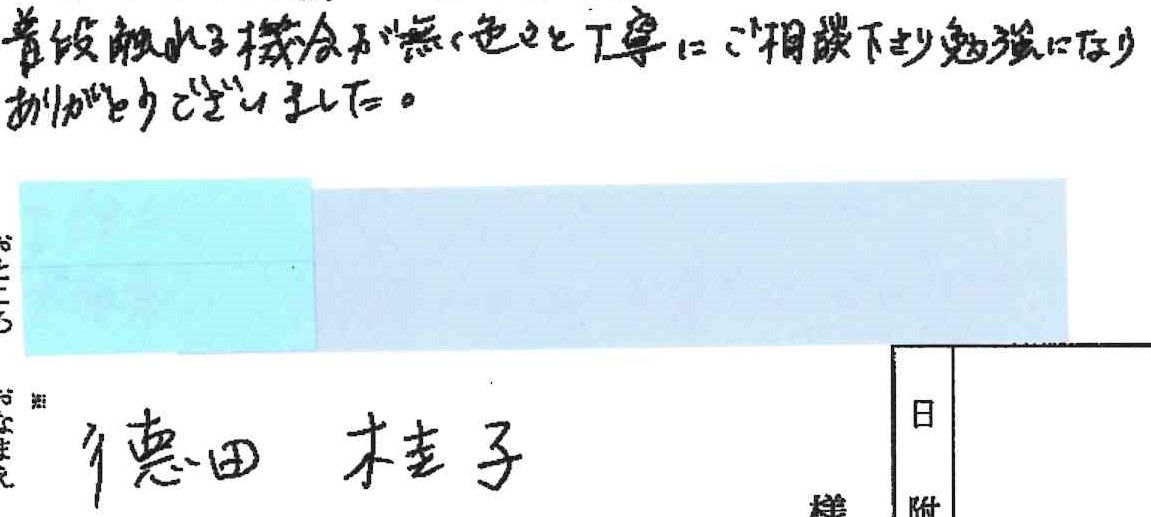 普段触れる機会が無く色々と丁寧にご相談下さり勉強になり
ありがとうございました。
おところ
※
おなまえ
徳田 桂子
様
日附